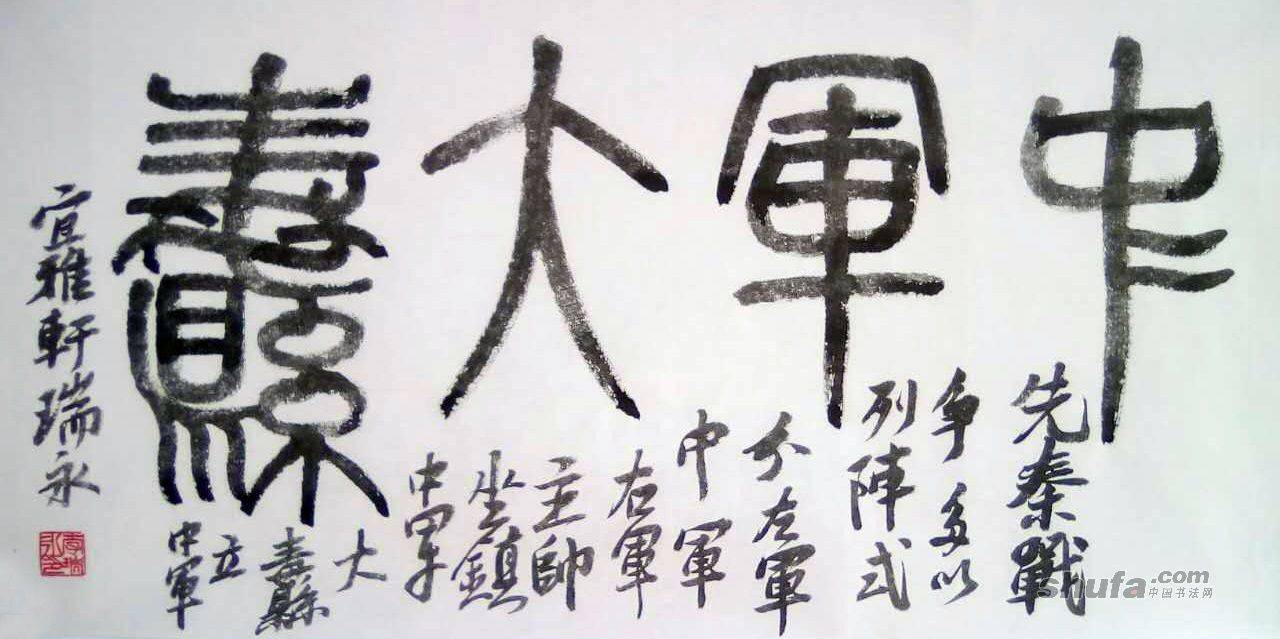 中軍大纛
先秦戰
争多以
列陣式
分左軍
中軍
右軍
主帥
坐鎮
中軍
大
纛
立
中軍
宜雅軒瑞永
shufa.com
中国书法网